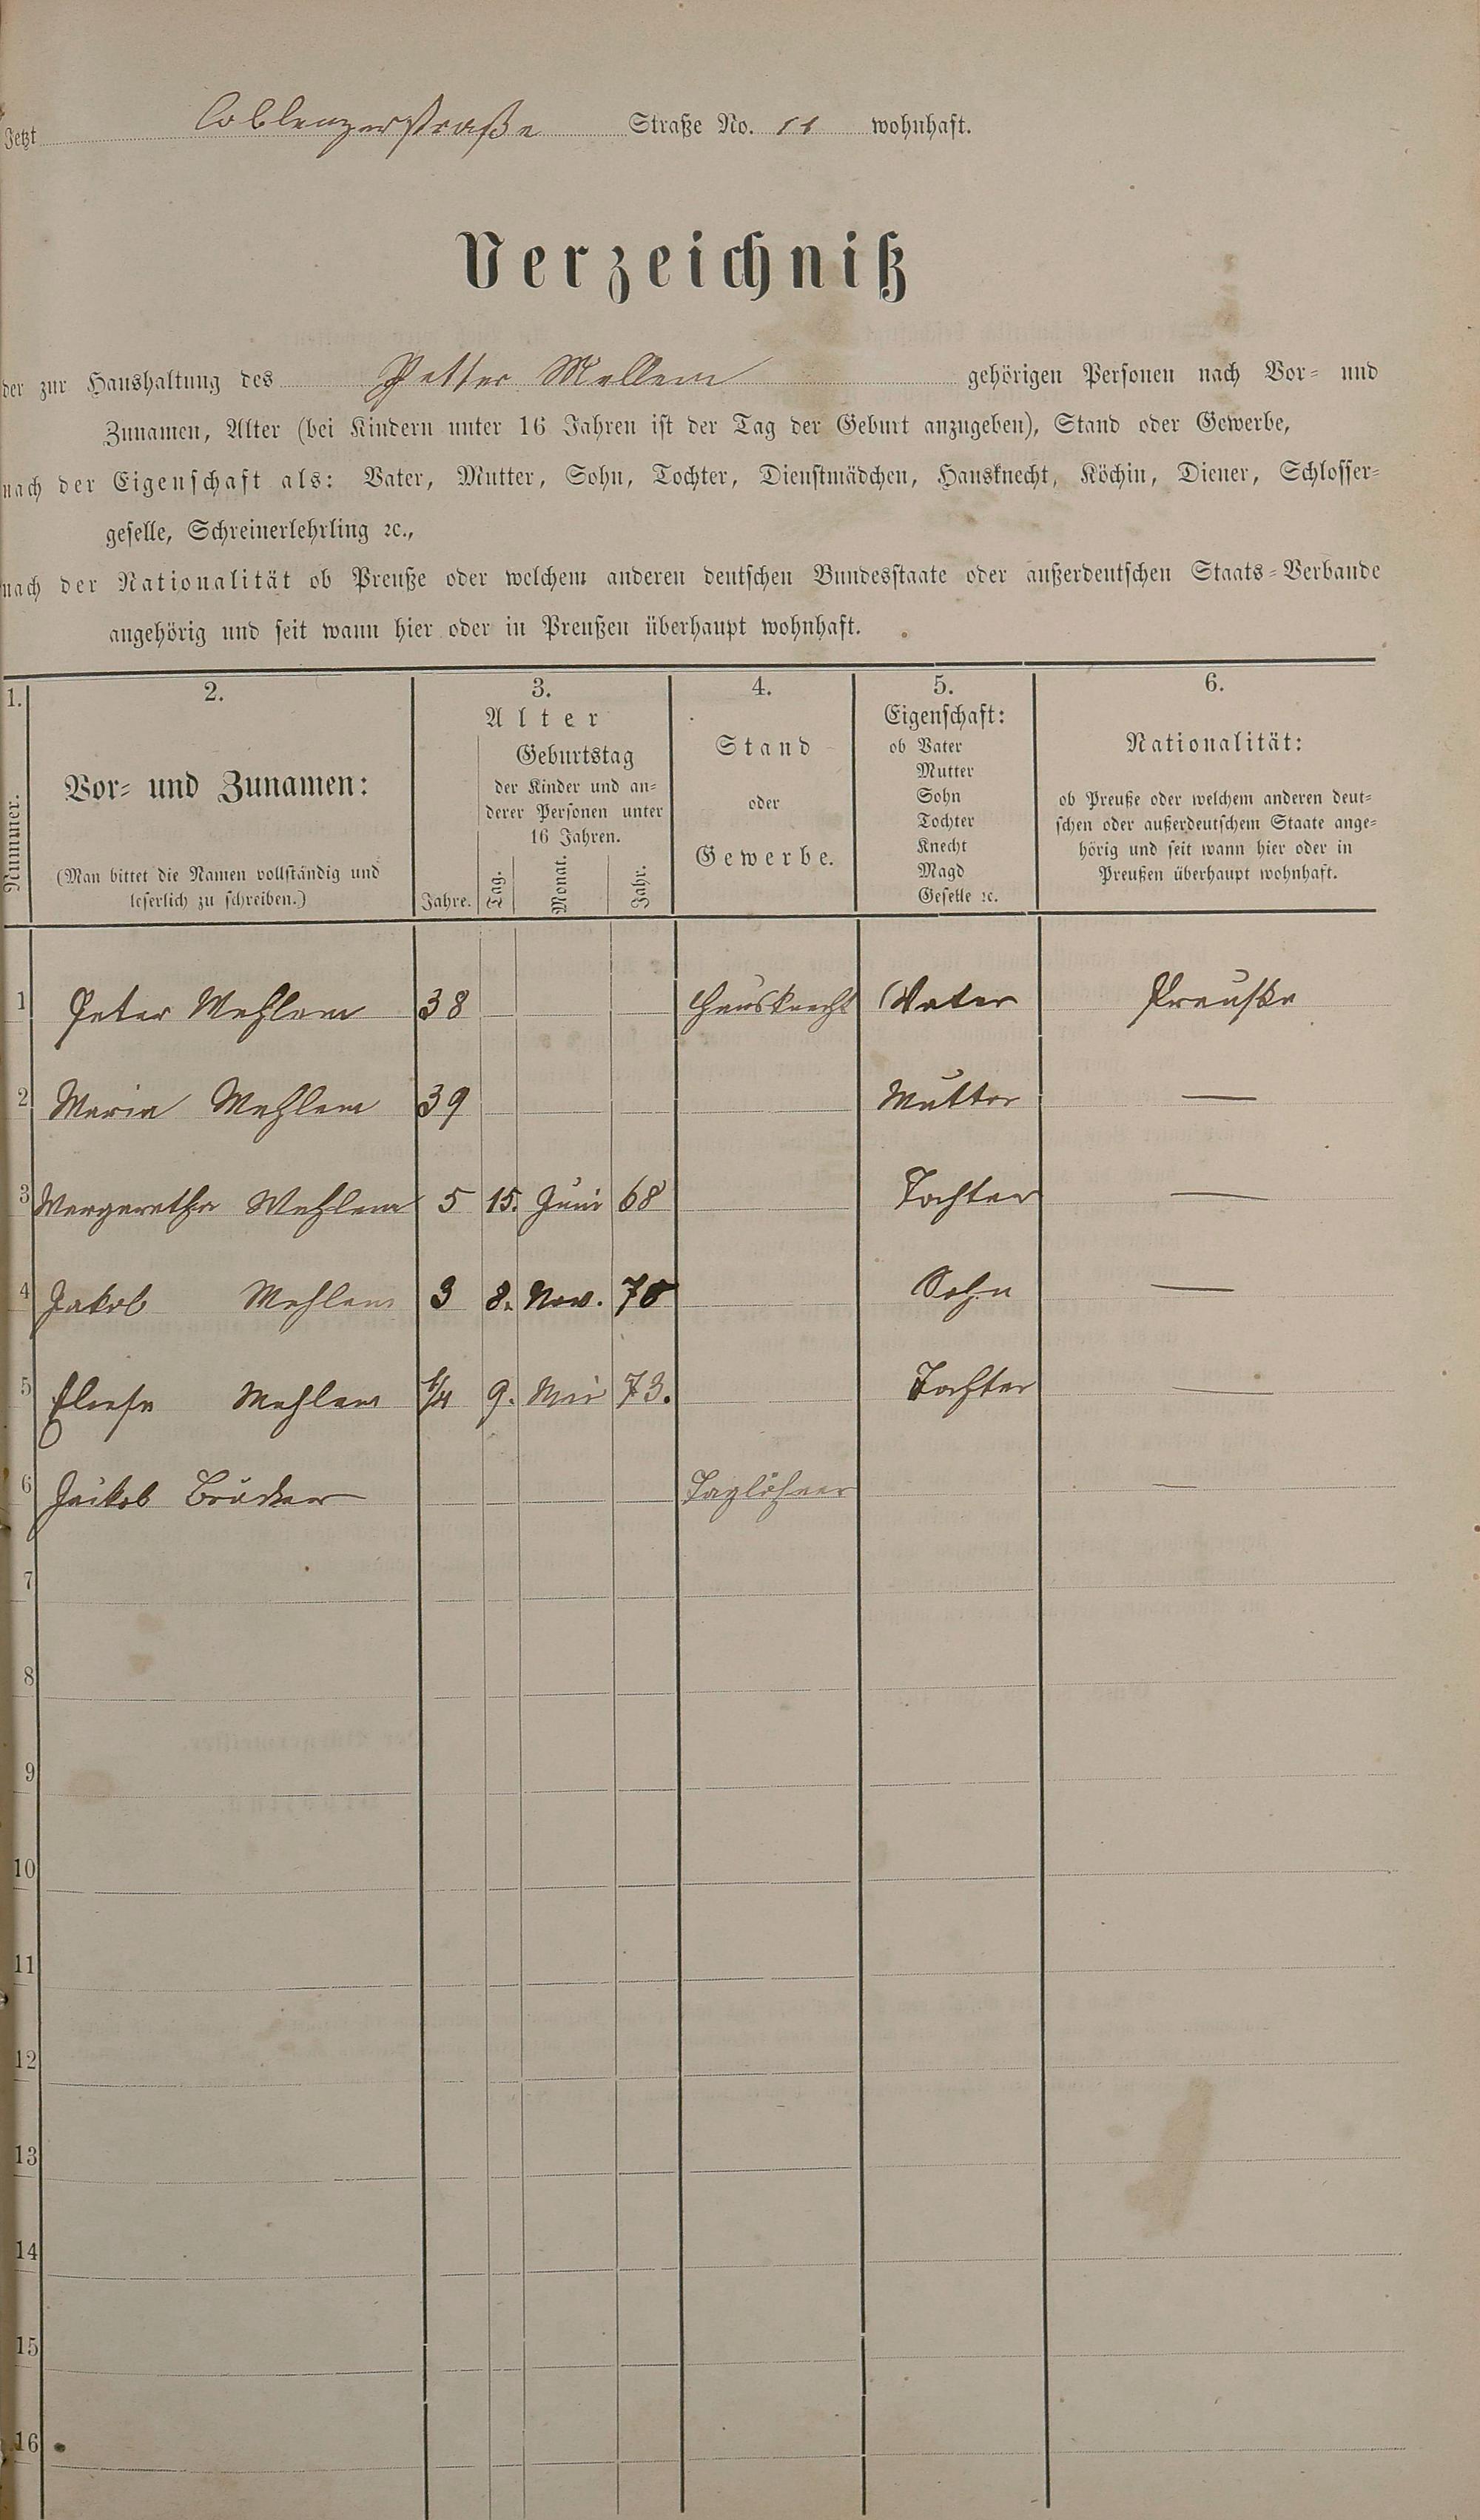 Jetzt Coblenzerstraße Straße No. 11 wohnhaft.
Verzeichniß
der zur Haushaltung des Petter Mellem gehörigen Personen nach Vor- und
Zunamen, Alter (bei Kindern unter 16 Jahren ist der Tag der Geburt anzugeben), Stand oder Gewerbe,
nach der Eigenschaft als: Vater, Mutter, Sohn, Tochter, Dienstmädchen, Hausknecht, Köchin, Diener, Schlosser-
geselle, Schreinerlehrling ꝛc.,
nach der Nationalität ob Preuße oder welchem anderen deutschen Bundesstaate oder außerdeutschen Staats-Verbande
angehörig und seit wann hier oder in Preußen überhaupt wohnhaft.
1.
Nummer.
2.
Vor- und Zunamen:
(Man bittet die Namen vollständig und
leserlich zu schreiben.)
3.
Alter
Jahre.
Geburtstag
der Kinder und an-
derer Personen unter
16 Jahren.
Tag. Monat. Jahr.
4.
Stand
oder
Gewerbe.
5.
Eigenschaft:
ob Vater
Mutter
Sohn
Tochter
Knecht
Magd
Geselle ꝛc.
6.
Nationalität:
ob Preuße oder welchem anderen deut-
schen oder außerdeutschem Staate ange-
hörig und seit wann hier oder in
Preußen überhaupt wohnhaft.
1 Peter Mehlem 38 Hausknecht Vater Preuße
2 Maria Mehlem 39 Mutter —
3 Margaretha Mehlem 5 15. Juni 68 Tochter —
4 Jakob Mehlem 3 8. Nov. 70 Sohn —
5 Eliese Mehlem 1/4 9. Mai 73. Tochter —
6 Jakob Brücker Taglöhner —
7
8
9
10
11
12
13
14
15
16